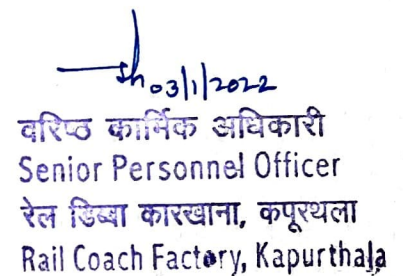 03/1/2022
वरिष्ठ कार्मिक अधिकारी
Senior Personnel Officer
रेल डिब्बा कारखाना, कपूरथला
Rail Coach Factory, Kapurthala